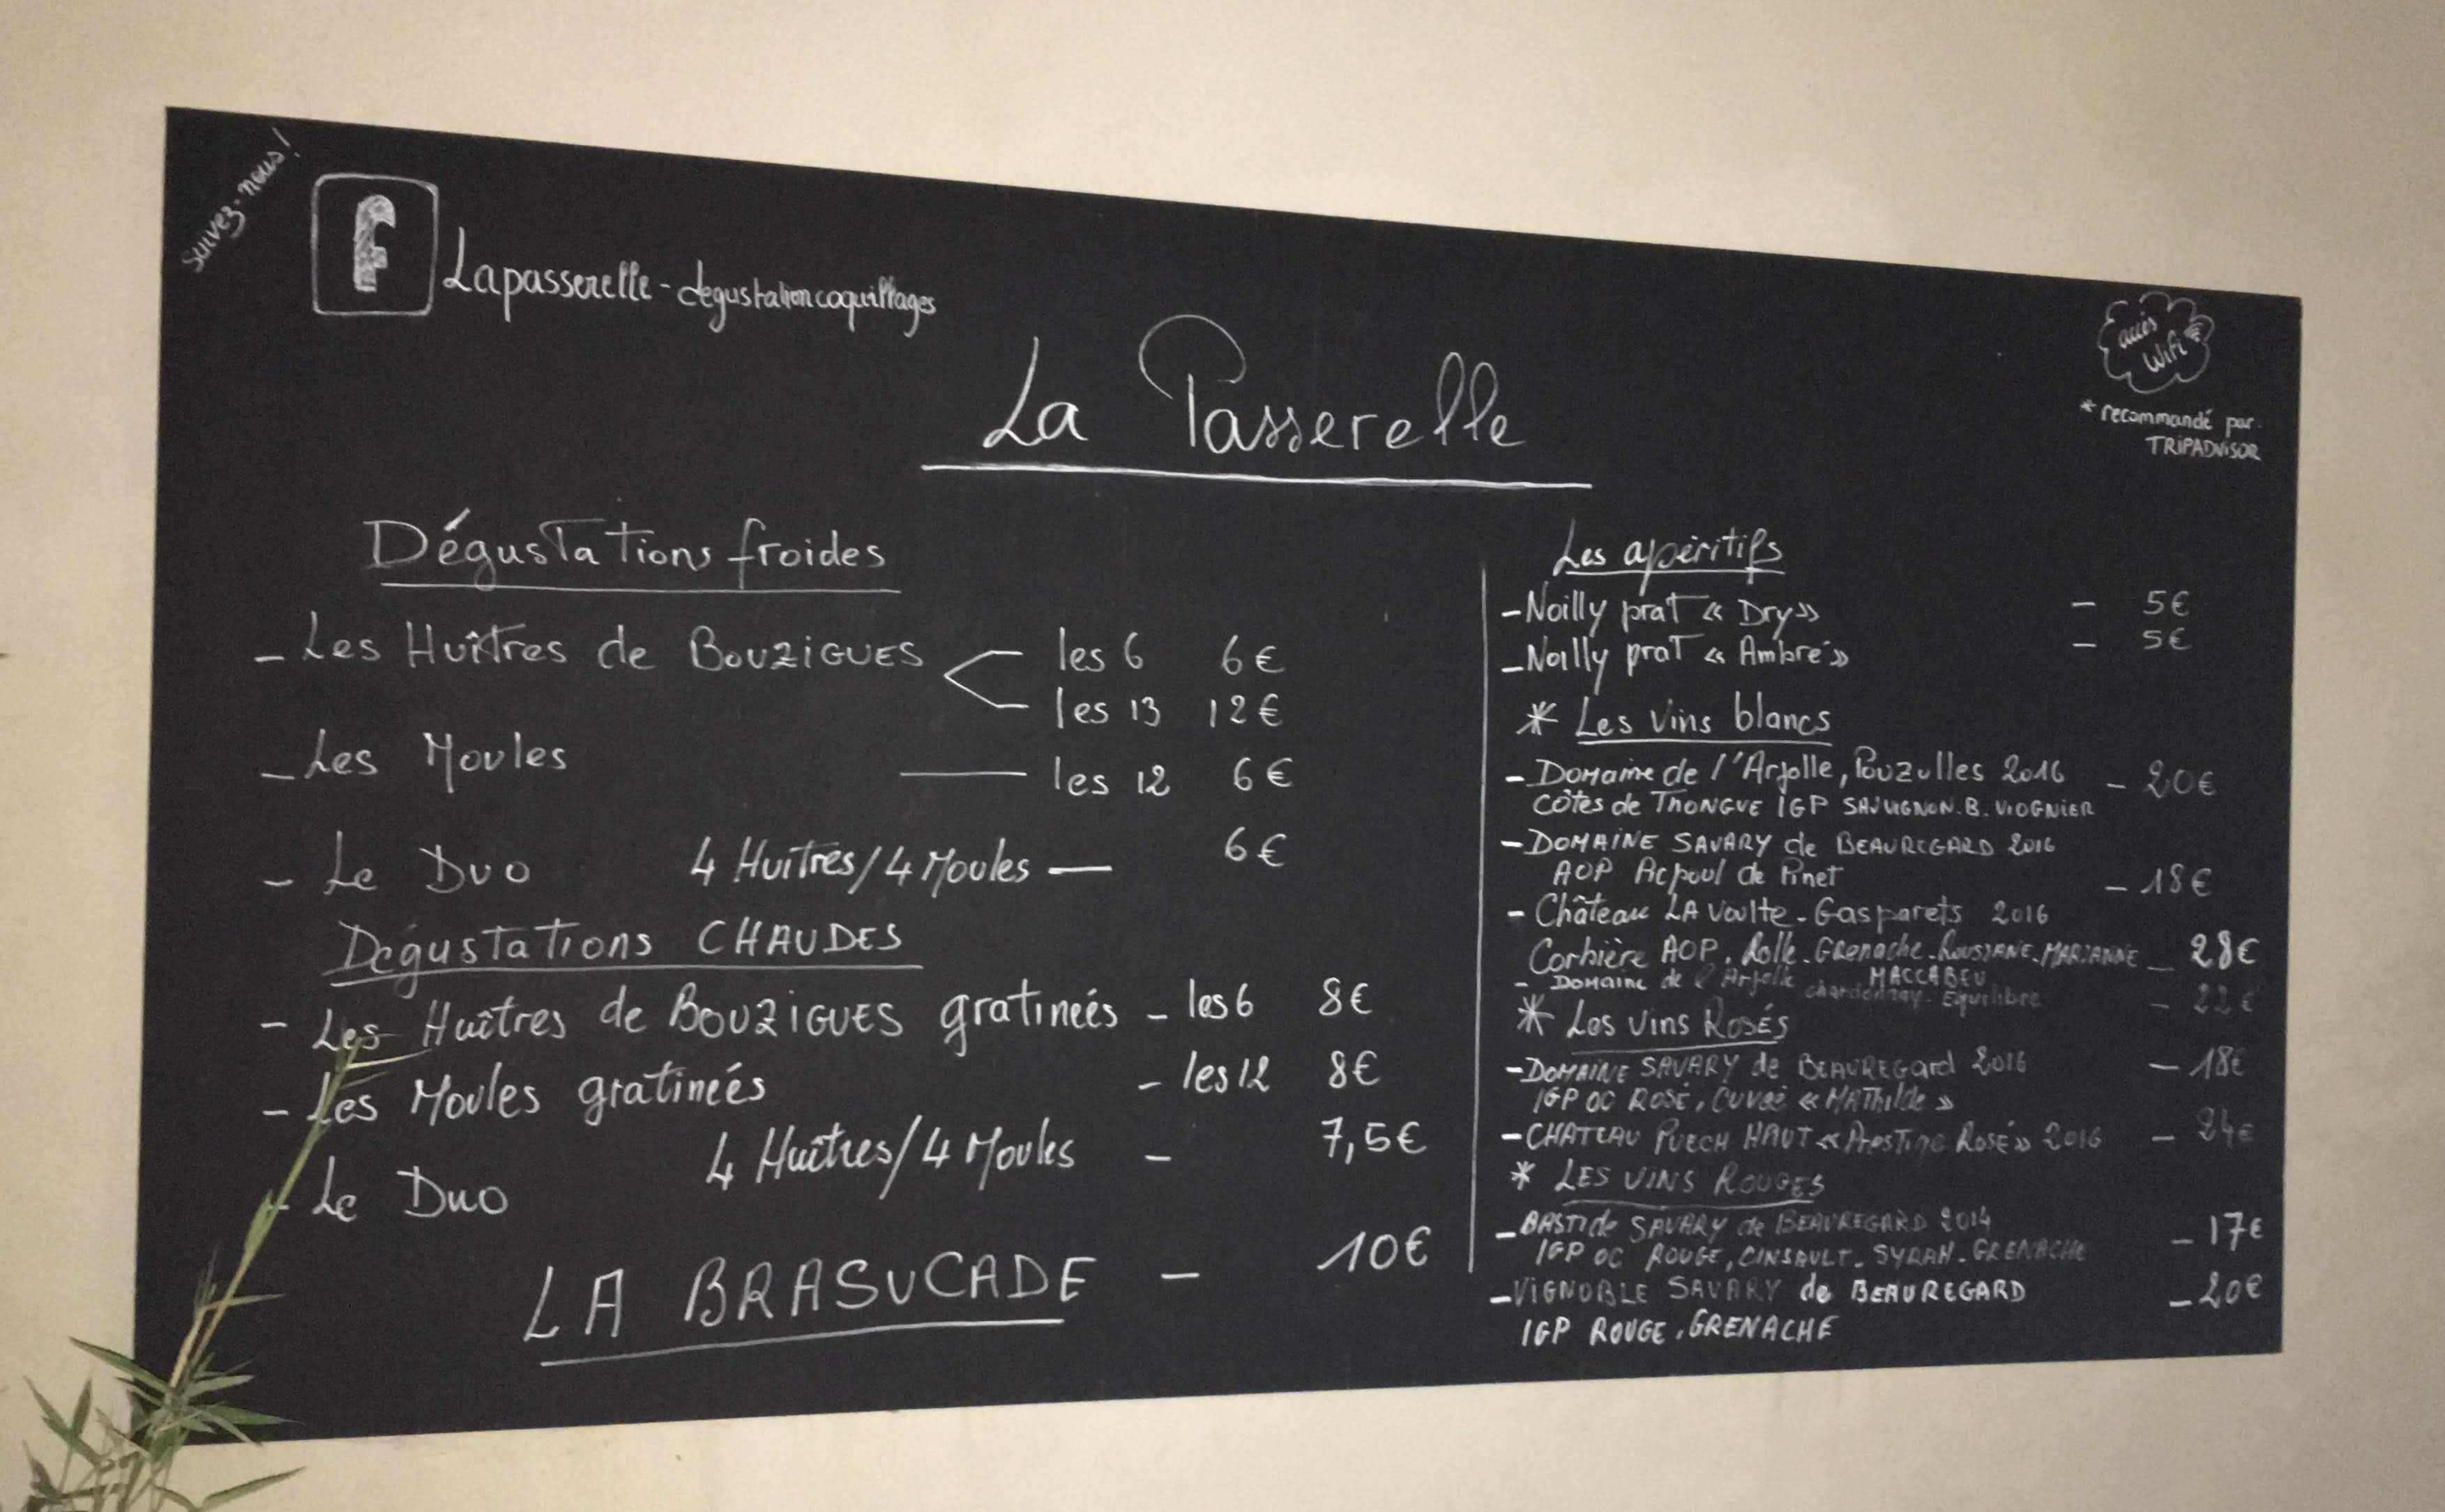 suivez-nous!
f
Lapasserelle-degustationcoquillages
accès
Wifi
* recommandé par
TRIPADVISOR
La Passerelle
Dégustations froides
- Les Huîtres de BOUZIGUES les 6 6€
les 13 12€
- Les Moules les 12 6€
- Le Duo 4 Huîtres/4 Moules — 6€
Dégustations CHAUDES
- Les Huîtres de BOUZIGUES gratineés - les 6 8€
- Les Moules gratineés - les 12 8€
4 Huîtres/4 Moules - 7,5€
- Le Duo
LA BRASUCADE - 10€
Les apéritifs
- Noilly prat « Dry » - 5€
- Noilly prat « Ambré » - 5€
* Les vins blancs
- Domaine de l'Arjolle, Pouzolles 2016 - 20€
Côtes de THONGUE IGP SAUVIGNON.B. VIOGNIER
- DOMAINE SAVARY de BEAUREGARD 2016
AOP Picpoul de Pinet - 18€
- Château LA Voulte-Gasparets 2016
Corbière AOP. Rolle-Grenache-ROUSSANE-MARSANNE - 28€
MACCABEU
- Domaine de l'Arjolle chardonnay-Equilibre - 22€
* Les vins Rosés
- DOMAINE SAVARY de BEAUREGard 2016 - 18€
IGP OC ROSÉ, Cuvée « MAThilde »
- CHATEAU PUECH HAUT « Prestige Rosé » 2016 - 24€
* LES VINS ROUGES
- BASTide SAVARY de BEAUREGARD 2014 - 17€
IGP OC ROUGE, CINSAULT-SYRAH-GRENACHE
- VIGNOBLE SAVARY de BEAUREGARD - 20€
IGP ROUGE, GRENACHE